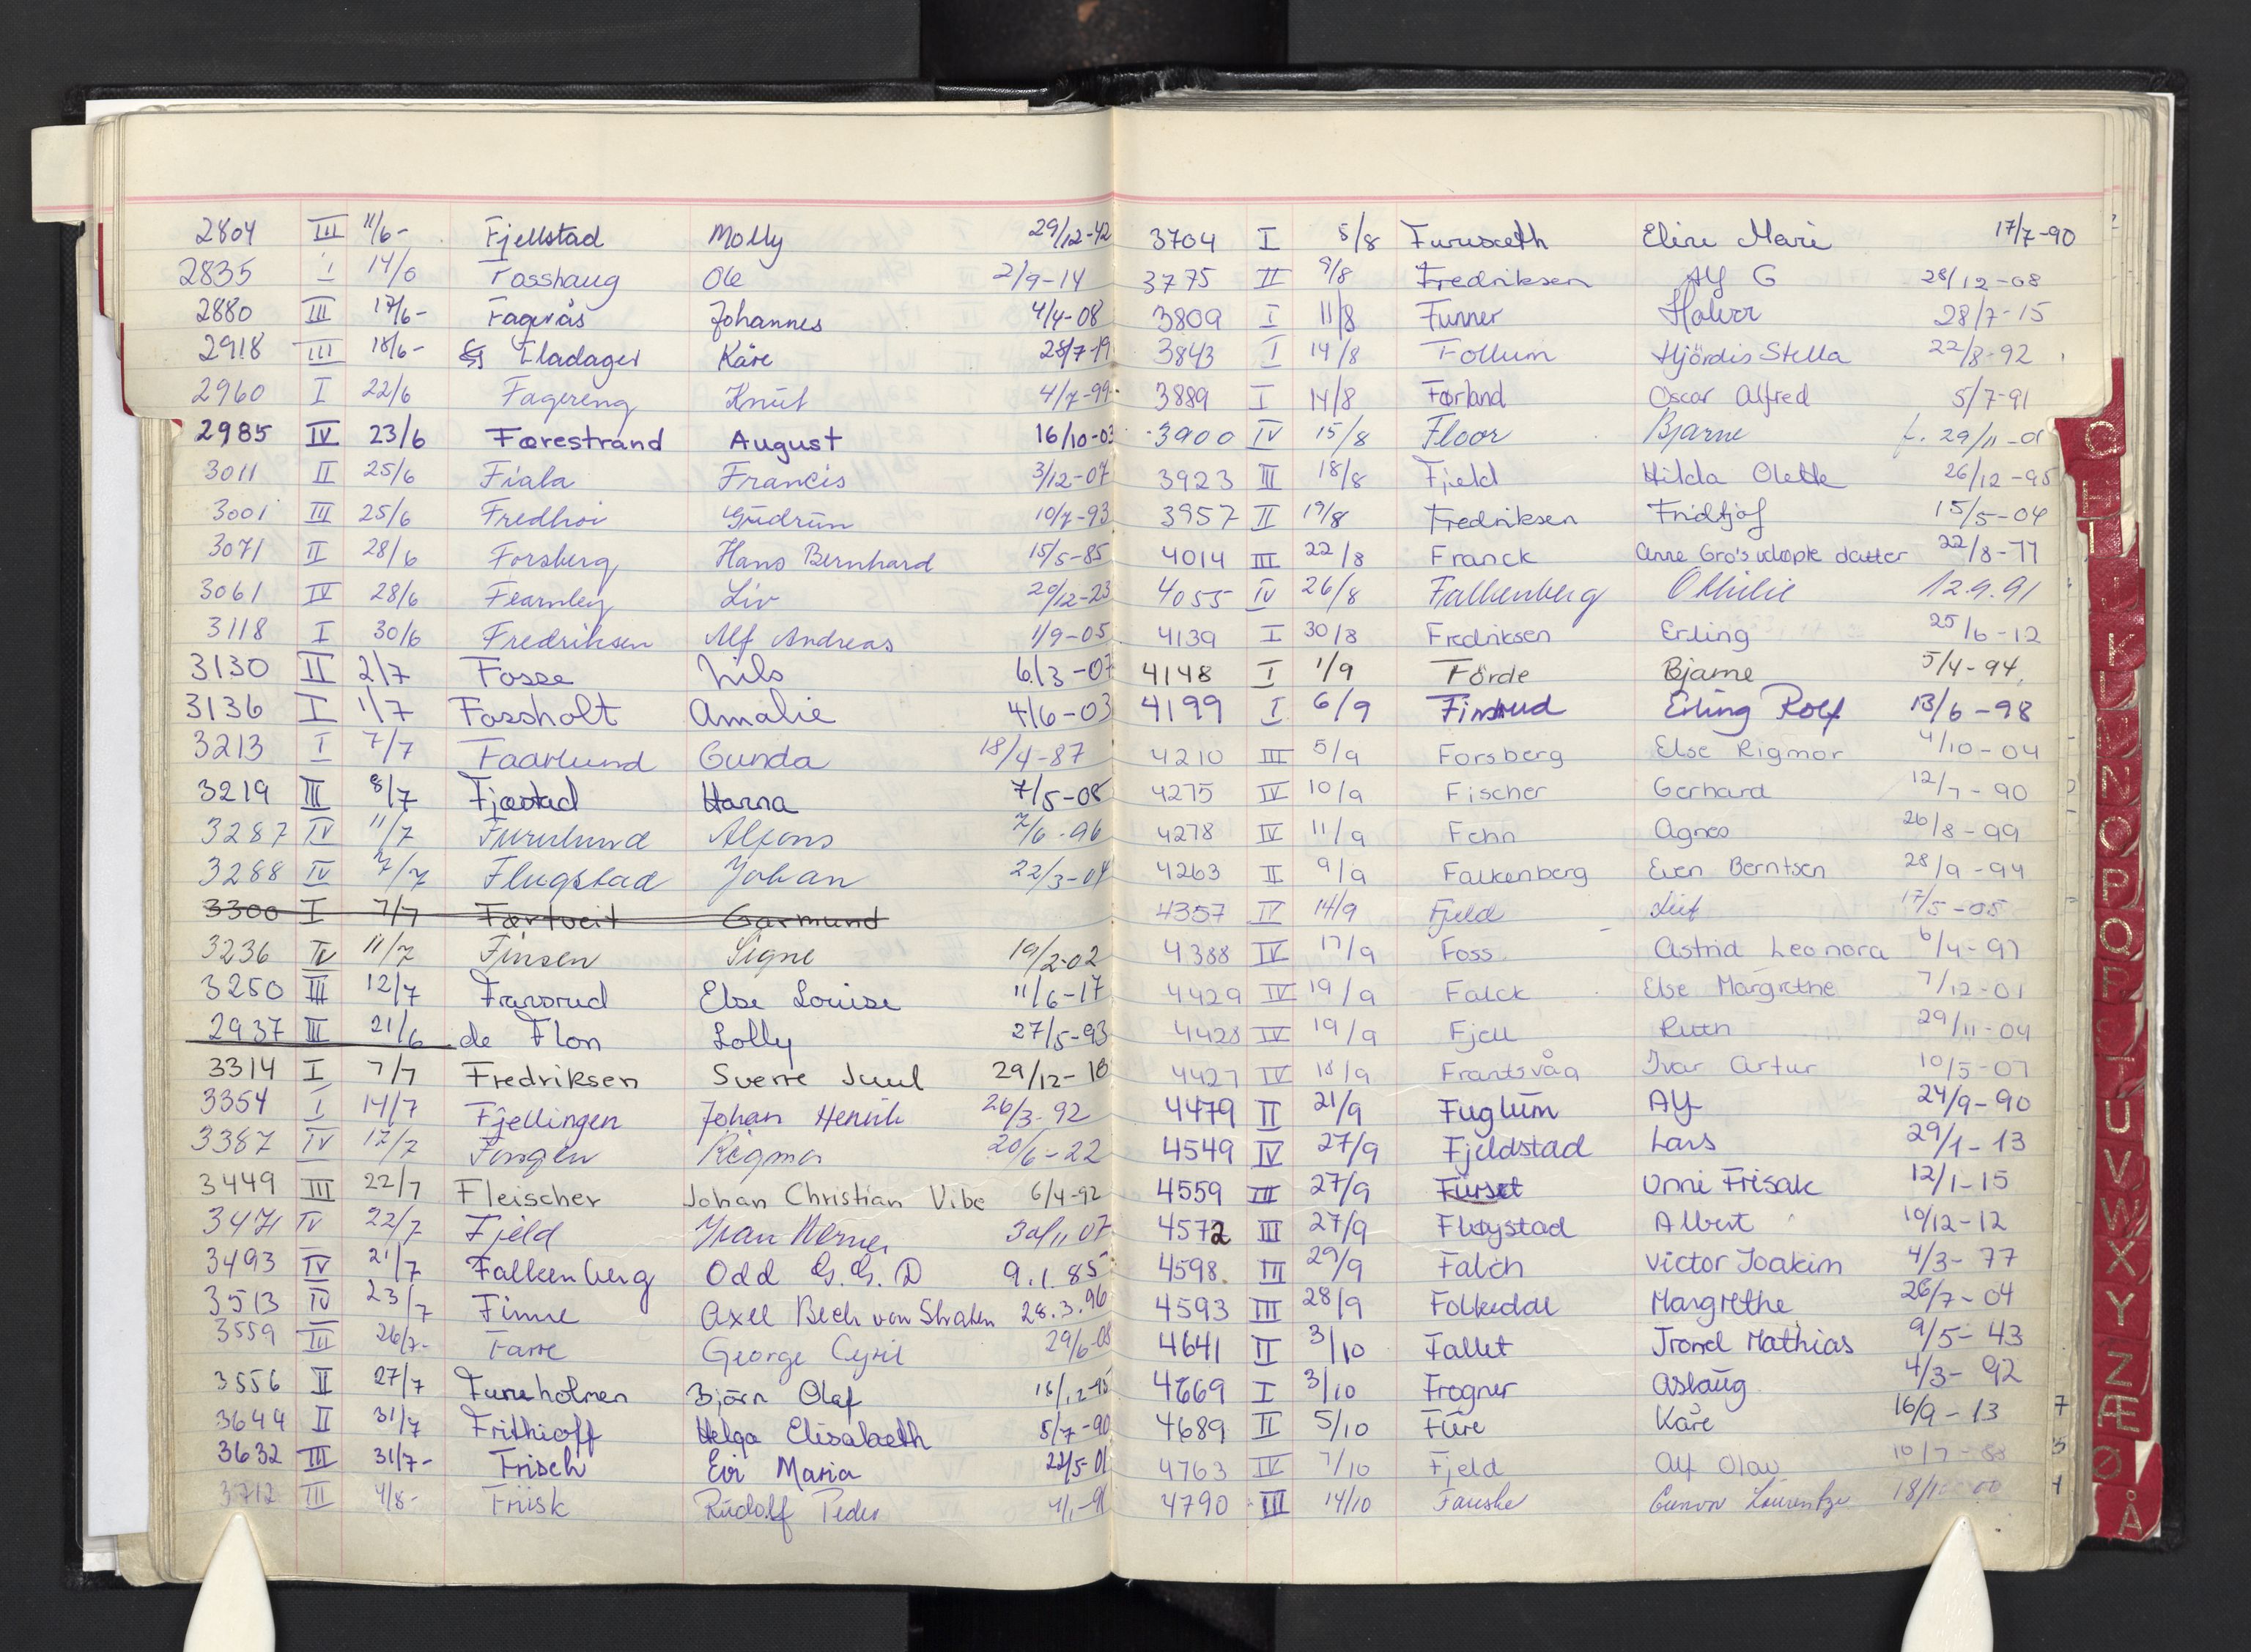 2804 III 11/6- Fjellstad Molly 29/12-42
2835 I 14/6 Fosshaug Ole 2/9-14
2880 III 17/6- Fagerås Johannes 4/4-08
2918 III 18/6- Fladager Kåre 28/7-19
2960 I 22/6 Fagereng Knut 4/7-99
2985 IV 23/6 Førestrand August 16/10-03
3011 II 25/6 Fiala Francis 3/12-07
3001 III 25/6 Fredhoi Gudrun 10/7-93
3071 II 28/6 Forsberg Hans Bernhard 15/5-85
3061 IV 28/6 Fearnley Liv 20/12-23
3118 I 30/6 Fredriksen Alf Andreas 1/9-05
3130 II 2/7 Fosse Nils 6/3-07
3136 I 1/7 Fossholt Amalie 4/6-03
3213 I 7/7 Faarlund Gunda 18/4-87
3219 III 8/7 Fjæstad Hanna 7/5-08
3287 IV 11/7 Furulund Alfons 7/6-96
3288 IV 7/7 Flugstad Johan 22/3-04
3300 I 7/7 Førtveit Garmund
3236 IV 11/7 Finsen Signe 19/2-02
3250 III 12/7 Fransrud Else Louise 11/6-17
2937 III 21/6 de Flon Lolly 27/5-93
3314 I 7/7 Fredriksen Sverre Juul 29/12-10
3354 I 14/7 Fjellingen Johan Henrik 26/3-92
3387 IV 17/7 Fongen Rigmor 20/6-22
3449 III 22/7 Fleischer Johan Christian Vibe 6/4-92
3471 IV 22/7 Fjeld Ivan Werner 30/11 07
3493 IV 21/7 Falkenberg Odd G. G. D 9.1.85
3513 IV 23/7 Finne Axel Bech von Straten 28.3.96
3559 III 26/7- Farre George Cyril 29/6-08
3556 II 27/7 Furuholmen Bjørn Olaf 16/12-95
3644 II 31/7 Frithioff Helga Elisabeth 5/7-90
3632 III 31/7- Frisch Evi Maria 22/5-01
3712 III 4/8- Friisk Rudolf Peder 4/1-91
3704 I 5/8 Furuseth Eline Marie 17/7-90
3775 II 9/8 Fredriksen Alf G 28/12-08
3809 I 11/8 Funner Halvor 28/7-15
3843 I 14/8 Follum Hjördis Stella 22/8-92
3889 I 14/8 Førland Oscar Alfred 5/7-91
3900 IV 15/8 Floor Bjarne f. 29/11-01
3923 III 18/8 Fjeld Hilda Olette 26/12-95
3957 II 19/8 Fredriksen Fridtjof 15/5-04
4014 III 22/8 Franck Anne Gro's udøpte datter 22/8-77
4055 IV 26/8 Falkenberg Othilie 12.9.91
4139 I 30/8 Fredriksen Erling 25/6-12
4148 I 1/9 Förde Bjarne 5/4-94
4199 I 6/9 Finsrud Erling Rolf 13/6-98
4210 III 5/9 Forsberg Else Rigmor 4/10-04
4275 IV 10/9 Fischer Gerhard 12/7-90
4278 IV 11/9 Fehn Agnes 26/8-99
4263 II 9/9 Falkenberg Even Berntsen 28/9-94
4357 IV 14/9 Fjeld Leif 17/5-05
4388 IV 17/9 Foss Astrid Leonora 6/4-97
4429 IV 19/9 Falck Else Margrethe 7/12-01
4428 IV 19/9 Fjell Ruth 29/11-04
4427 IV 18/9 Frantsvåg Ivar Artur 10/5-07
4479 II 21/9 Fuglum Alf 24/9-90
4549 IV 27/9 Fjeldstad Lars 29/1-13
4559 III 27/9 Furset Unni Frisak 12/1-15
4572 III 27/9 Fløystad Albert 10/12-12
4598 III 29/9 Falch Victor Joakim 4/3-77
4593 III 28/9 Folkedal Margrethe 26/7-04
4641 II 3/10 Fallet Trond Mathias 9/5-43
4669 I 3/10 Frogner Aslaug 4/3-92
4689 II 5/10 Fure Kåre 16/9-13
4763 IV 7/10 Fjeld Alf Olav 10/7-88
4790 III 14/10 Fauske Gunvor
G
H
I
K
N
O
P
Q
R
S
T
U
V
W
X
Y
Z
Æ
Ø
Å